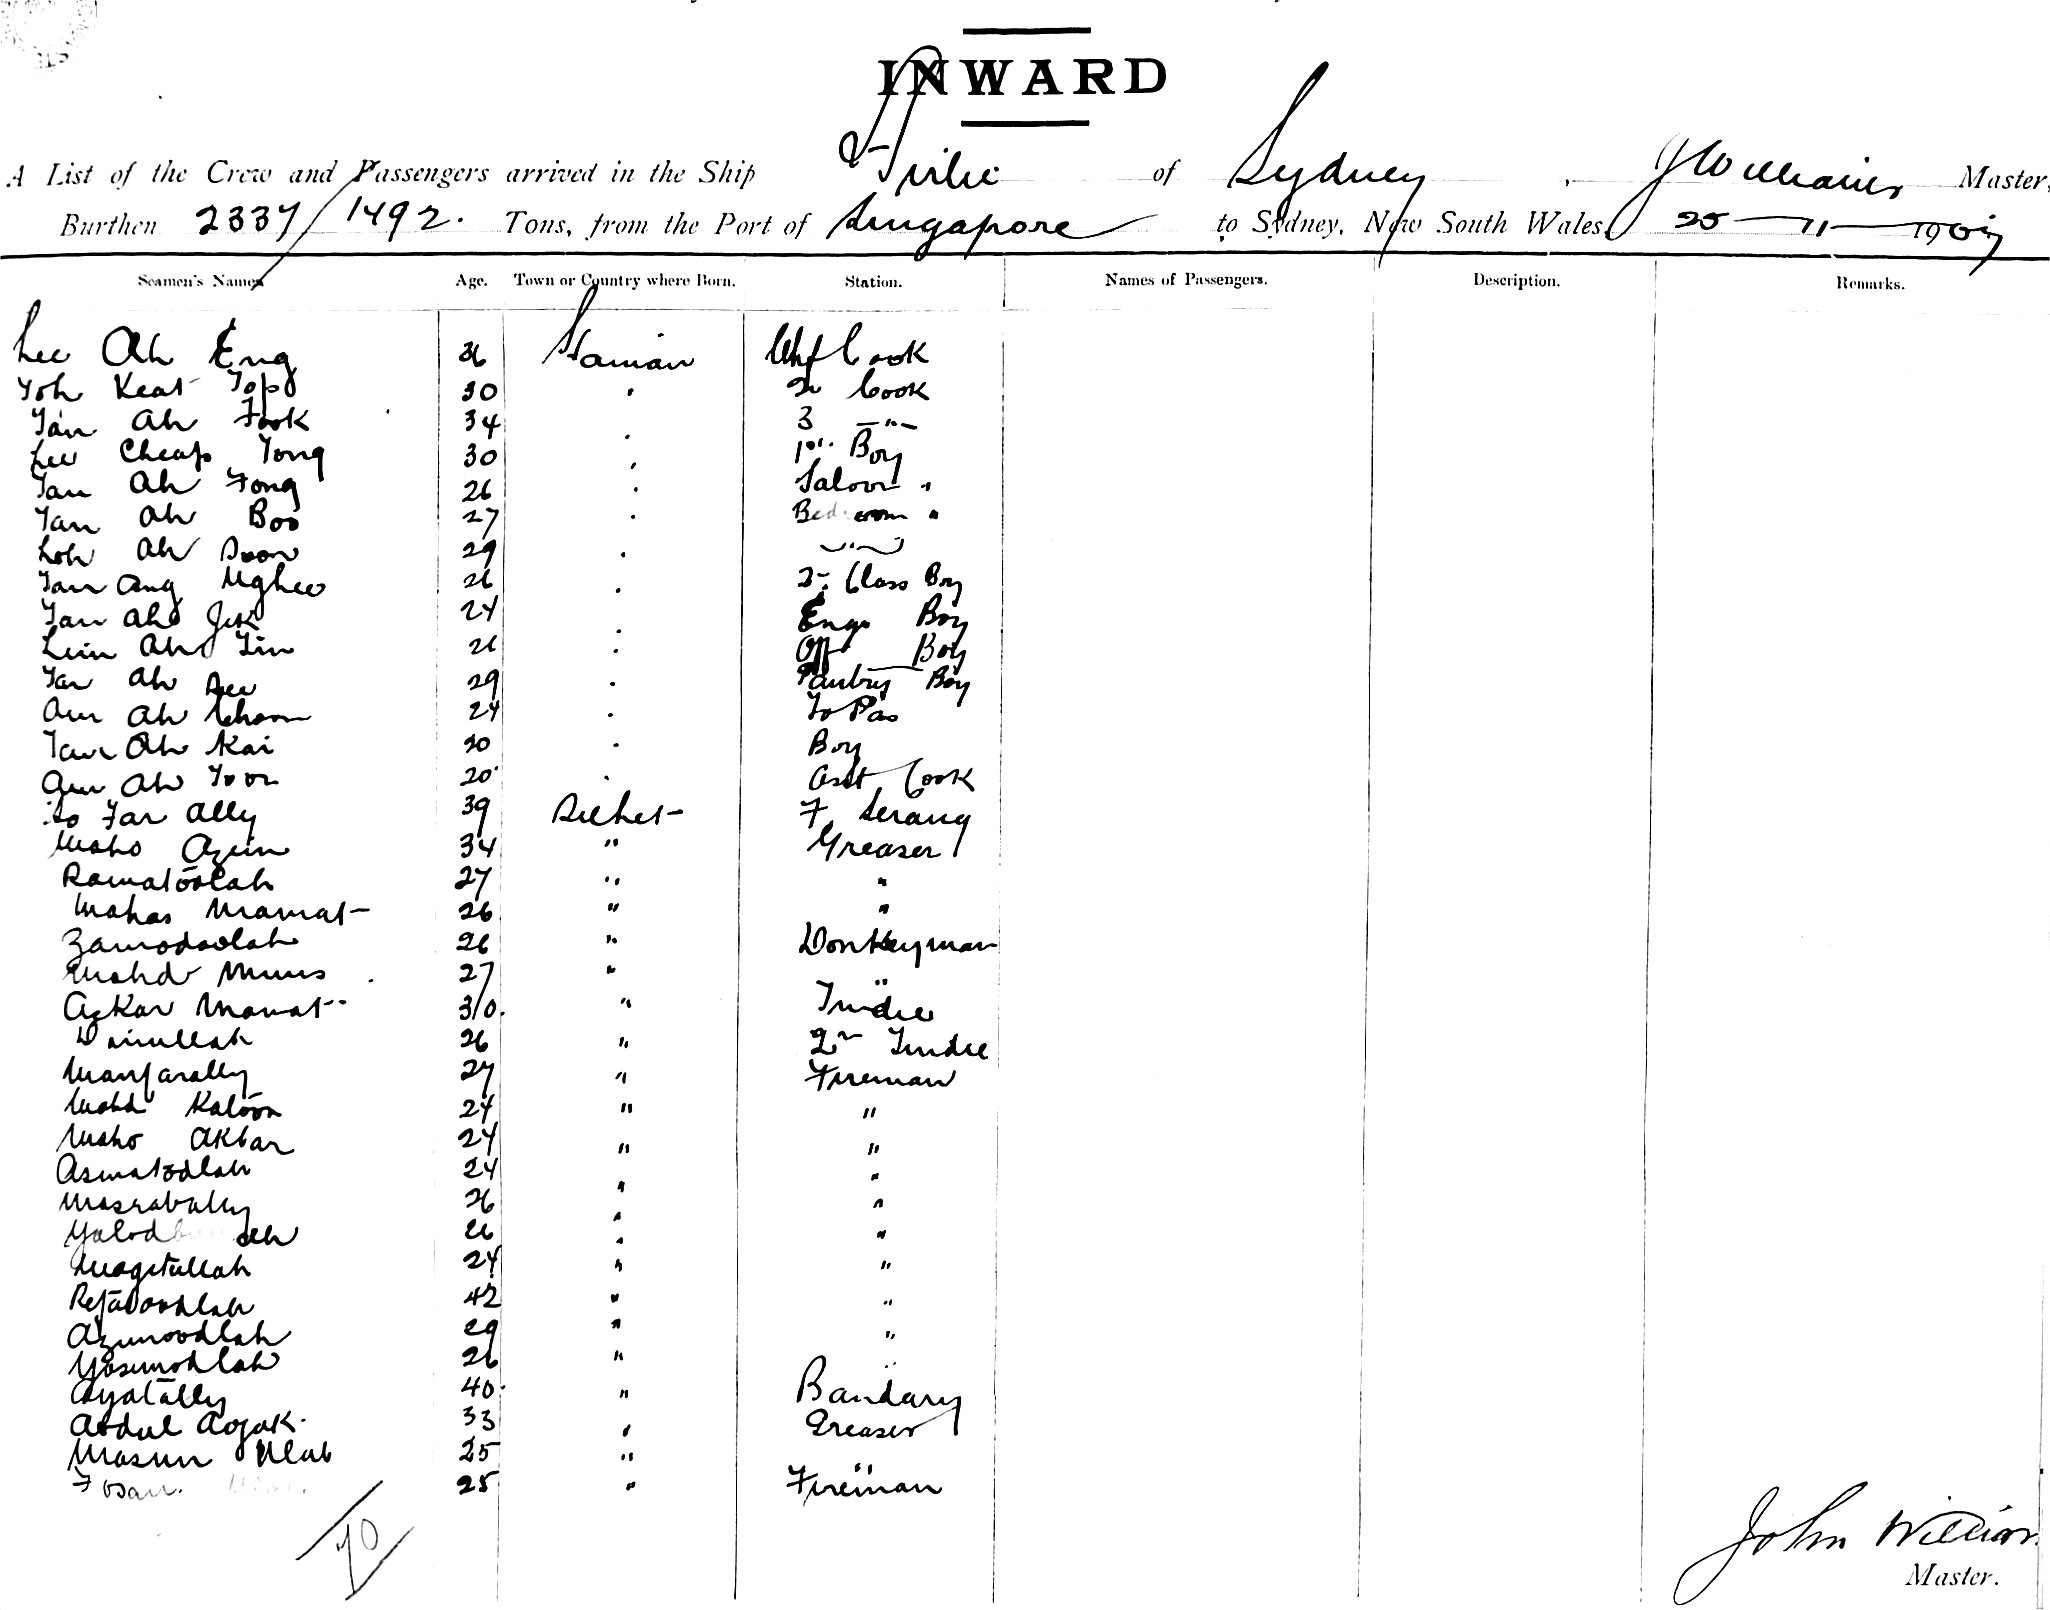 INWARD
A List of the Crew and Passengers arrived in the Ship Airlie of Sydney, J Williams Master,
Burthen 2337/1492. Tons, from the Port of Singapore to Sydney, New South Wales, 25-11-190
Seamen's Names Age. Town or Country where Born. Station. Names of Passengers. Description. Remarks.
Lee Ah Eng 36 Hainan Chf Cook
Toh Keat Yop 30 " 2n Cook
Tan Ah Fook 34 " 3 —"—
Lee Cheap Tong 30 " 1st Boy
Tan Ah Fong 26 " Saloon "
Tan Ah Boo 27 " Bedroom "
Loh Ah Soon 29 " "
Tan Ang Nghee 26 " 2n Class Boy
Tan Ah Jek 24 " Engs Boy
Lim Ah Tin 26 " Off Boy
Tan Ah See 29 " Pantry Boy
Aum Ah Choon 24 " To Pas
Tan Ah Kai 20 " Boy
Aum Ah Yoon 20 " Asst Cook
Far Ally 39 Silhet F Serang
Moho Azim 34 " Greaser
Ramatoolah 27 " "
Mohas Mamat 26 " "
Zamodoolah 26 " Donkeyman
Mohd Munus 27 " "
Azkar Mamat 30. " Tindle
Dainullah 26 " 2n Tindle
Manfarally 27 " Fireman
Mohd Kaloon 24 " "
Moho Akbar 24 " "
Asmatodlah 24 " "
Masrabally 26 " "
26 " "
Muagitullah 24 " "
42 " "
Azumoodlah 29 " "
Yosimodlah 26 " "
Ayatally 40. " Bandary
Abdul Aojak. 33 " Greaser
Masum Ulab 25 " "
Fosan. 25 " Fireman
70
John William
Master.